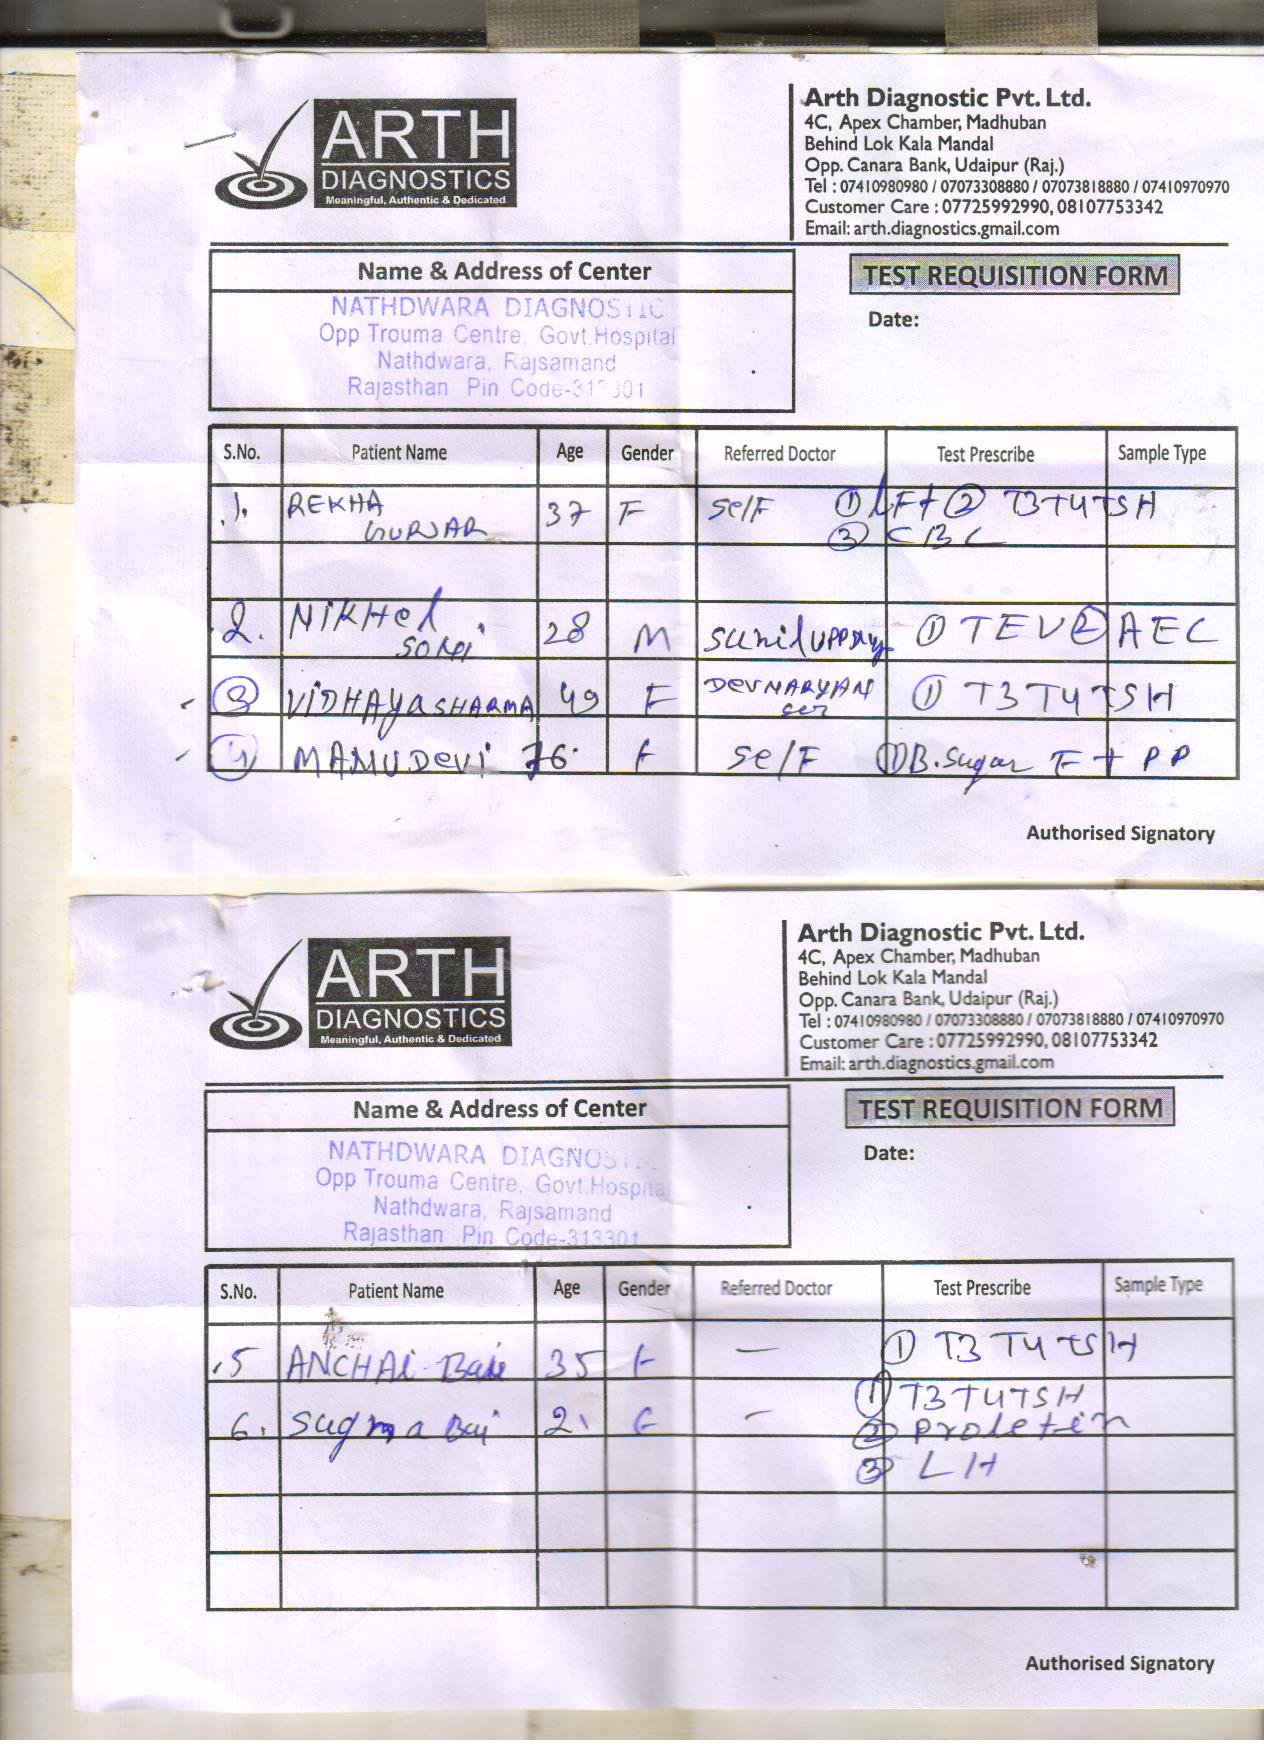 ARTH
DIAGNOSTICS
Meaningful, Authentic & Dedicated
Arth Diagnostic Pvt. Ltd.
4C, Apex Chamber, Madhuban
Behind Lok Kala Mandal
Opp. Canara Bank, Udaipur (Raj.)
Tel : 07410980980 / 07073308880 / 07073818880 / 07410970970
Customer Care : 07725992990, 08107753342
Email: arth.diagnostics.gmail.com
Name & Address of Center
TEST REQUISITION FORM
NATHDWARA DIAGNOSTIC
Date:
Opp Trouma Centre, Govt.Hospital
Nathdwara, Rajsamand
Rajasthan Pin Code-313301
S.No. Patient Name Age Gender Referred Doctor Test Prescribe Sample Type
1. REKHA 37 F Self ① LFt ② T3T4TSH
GURJAR ③ CBC
2. NiKHel 28 M Sunil ① TEV ② AEC
SONi
③ ViDHAyaSHARMA 49 F DevNARYAN ① T3T4TSH
④ MAMUDevi 76 F Self ① B.Sugar F + PP
Authorised Signatory
ARTH
DIAGNOSTICS
Meaningful, Authentic & Dedicated
Arth Diagnostic Pvt. Ltd.
4C, Apex Chamber, Madhuban
Behind Lok Kala Mandal
Opp. Canara Bank, Udaipur (Raj.)
Tel : 07410980980 / 07073308880 / 07073818880 / 07410970970
Customer Care : 07725992990, 08107753342
Email: arth.diagnostics.gmail.com
Name & Address of Center
TEST REQUISITION FORM
NATHDWARA DIAGNOSTIC
Date:
Opp Trouma Centre, Govt.Hospital
Nathdwara, Rajsamand
Rajasthan Pin Code-313301
S.No. Patient Name Age Gender Referred Doctor Test Prescribe Sample Type
5 ANCHAi Bai 35 F — ① T3T4TSH
6. Sugma Bai 21 F — ① T3T4TSH
② Proletin
③ LH
Authorised Signatory